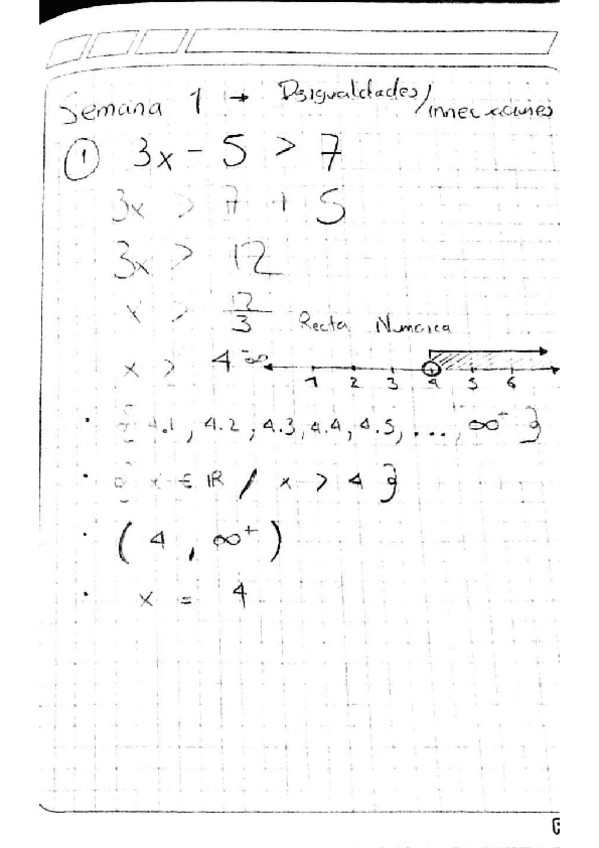 Semana 1 → Dsigualdades/innecuaciones
① 3x - 5 > 7
3x > 7 + 5
3x > 12
x > 12/3
Recta Numerica
x > 4
-∞ 1 2 3 4 5 6
· { 4.1, 4.2, 4.3, 4.4, 4.5, ..., ∞⁺ }
· { x ∈ IR / x > 4 }
· ( 4 , ∞⁺ )
· x = 4